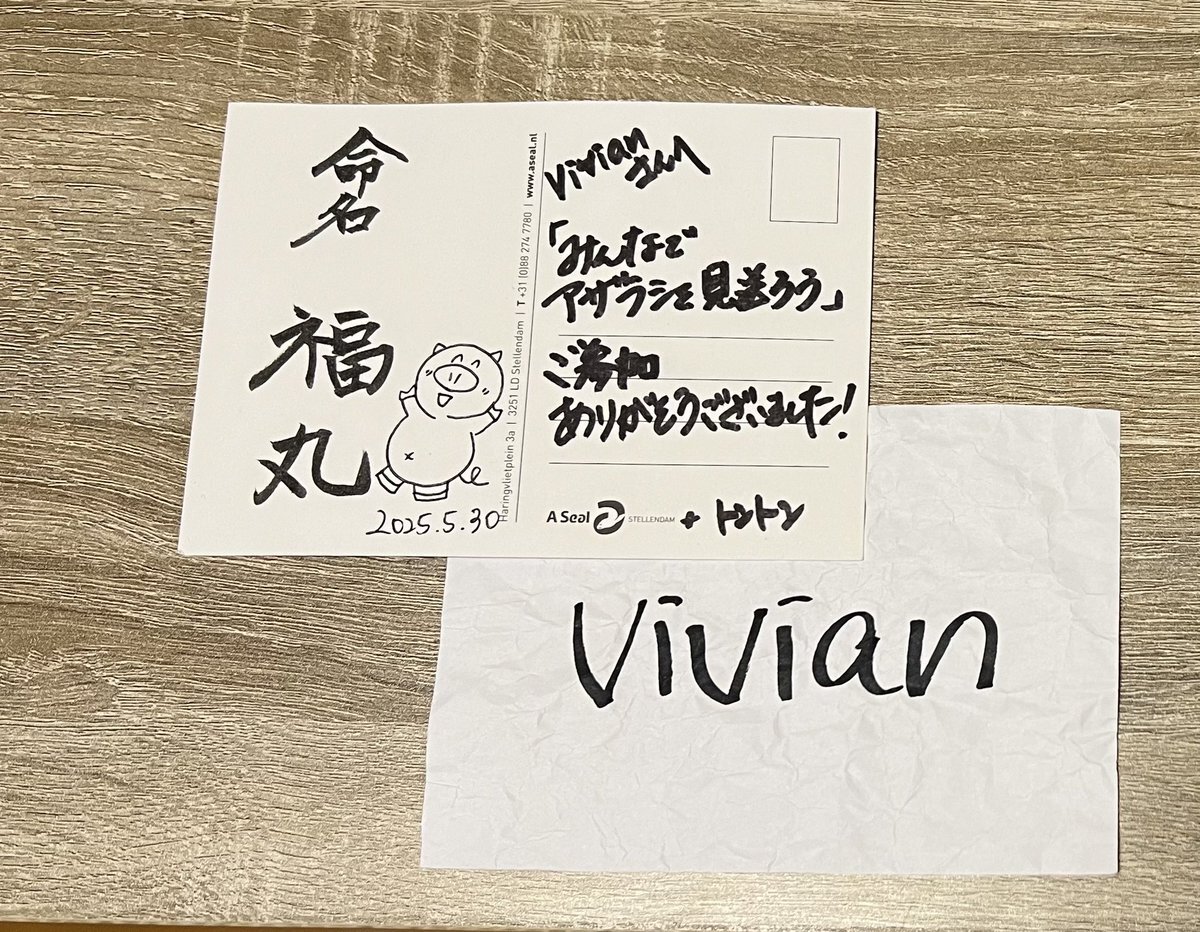 命名
福丸
2025.5.30
Haringvlietplein 3a | 3251 LD Stellendam | T +31 (0)88 274 7780 | www.aseal.nl
Vivian
さんへ
「みんなで
アザラシを見送ろう」
ご参加
ありがとうございました!
A Seal STELLENDAM + トントン
Vivian